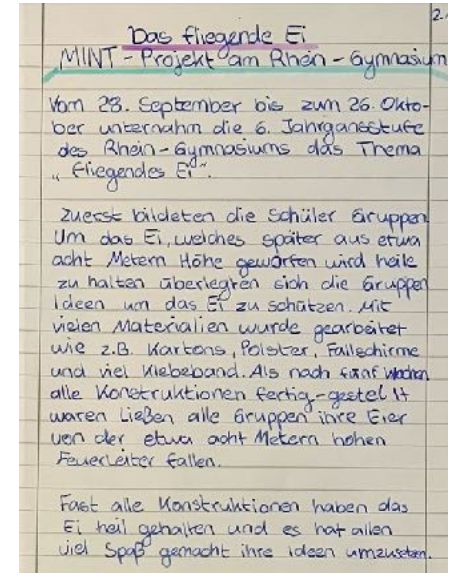 2.
Das fliegende Ei
MINT-Projekt am Rhein-Gymnasium
Vom 28. September bis zum 26. Okto-
ber unternahm die 6. Jahrgansstufe
des Rhein-Gymnasiums das Thema
„Fliegendes Ei“.
Zuerst bildeten die Schüler Gruppen
Um das Ei, welches später aus etwa
acht Metern Höhe geworfen wird heile
zu halten überlegten sich die Gruppen
Ideen um das Ei zu schützen. Mit
vielen Materialien wurde gearbeitet
wie z.B. Kartons, Polster, Fallschirme
und viel Klebeband. Als nach fünf Wochen
alle Konstruktionen fertig-gestellt
waren Ließen alle Gruppen ihre Eier
von der etwa acht Metern hohen
Feuerleiter fallen.
Fast alle Konstruktionen haben das
Ei heil gehalten und es hat allen
viel Spaß gemacht ihre Ideen umzusetzen.